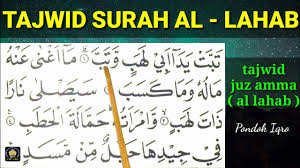 TAJWID SURAH AL - LAHAB
تَبَّتْ يَدَآ اَبِيْ لَهَبٍ وَّتَبَّ ۝ مَآ اَغْنٰى عَنْهُ
مَالُهٗ وَمَا كَسَبَ ۝ سَيَصْلٰى نَارًا
ذَاتَ لَهَبٍ ۝ وَّامْرَاَتُهٗ حَمَّالَةَ الْحَطَبِ ۝
فِيْ جِيْدِهَا حَبْلٌ مِّنْ مَّسَدٍ
tajwid
juz amma
( al lahab )
Pondok Iqro